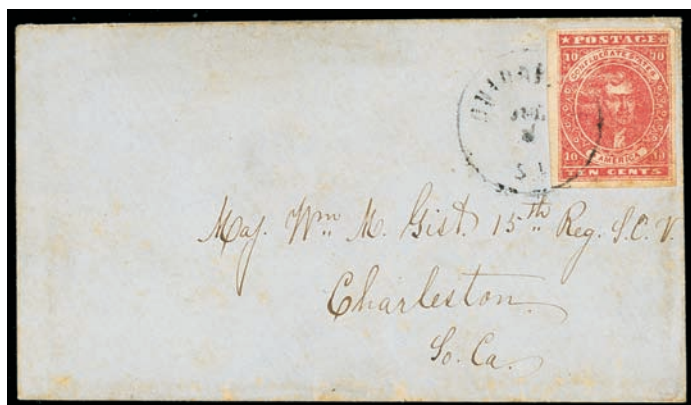 ★ POSTAGE
10 10
CONFEDERATE STATES
AMERICA
10 10
TEN CENTS
S.C.
Maj. Wm M. Gist. 15th Reg. S.C.V.
Charleston
So. Ca.